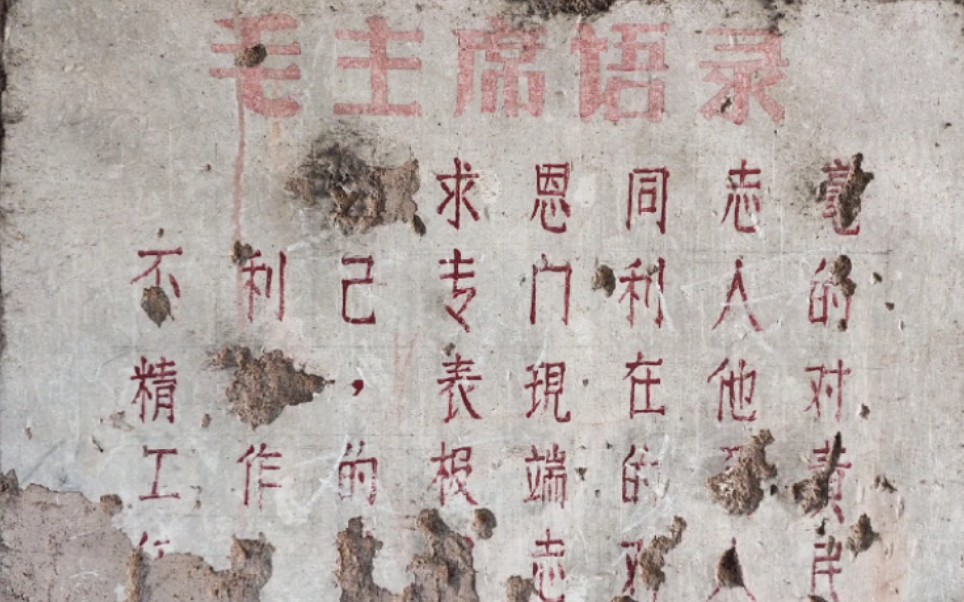 毛主席语录
求恩同志毫
不利己专门利人的
精，表現在他对
工作的极端的责
志对人民